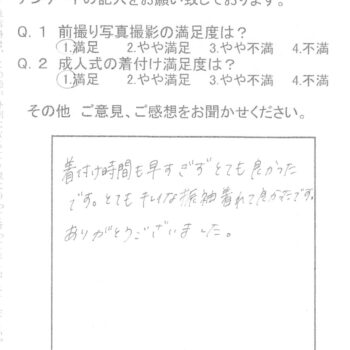 アンケートの記入をお願い致しております。
Q.1 前撮り写真撮影の満足度は？
1.満足 2.やや満足 3.やや不満 4.不満
Q.2 成人式の着付け満足度は？
1.満足 2.やや満足 3.やや不満 4.不満
その他 ご意見、ご感想をお聞かせください。
着付け時間も早すぎずとても良かった
です。とてもキレイな振袖着れて良かったです。
ありがとうございました。